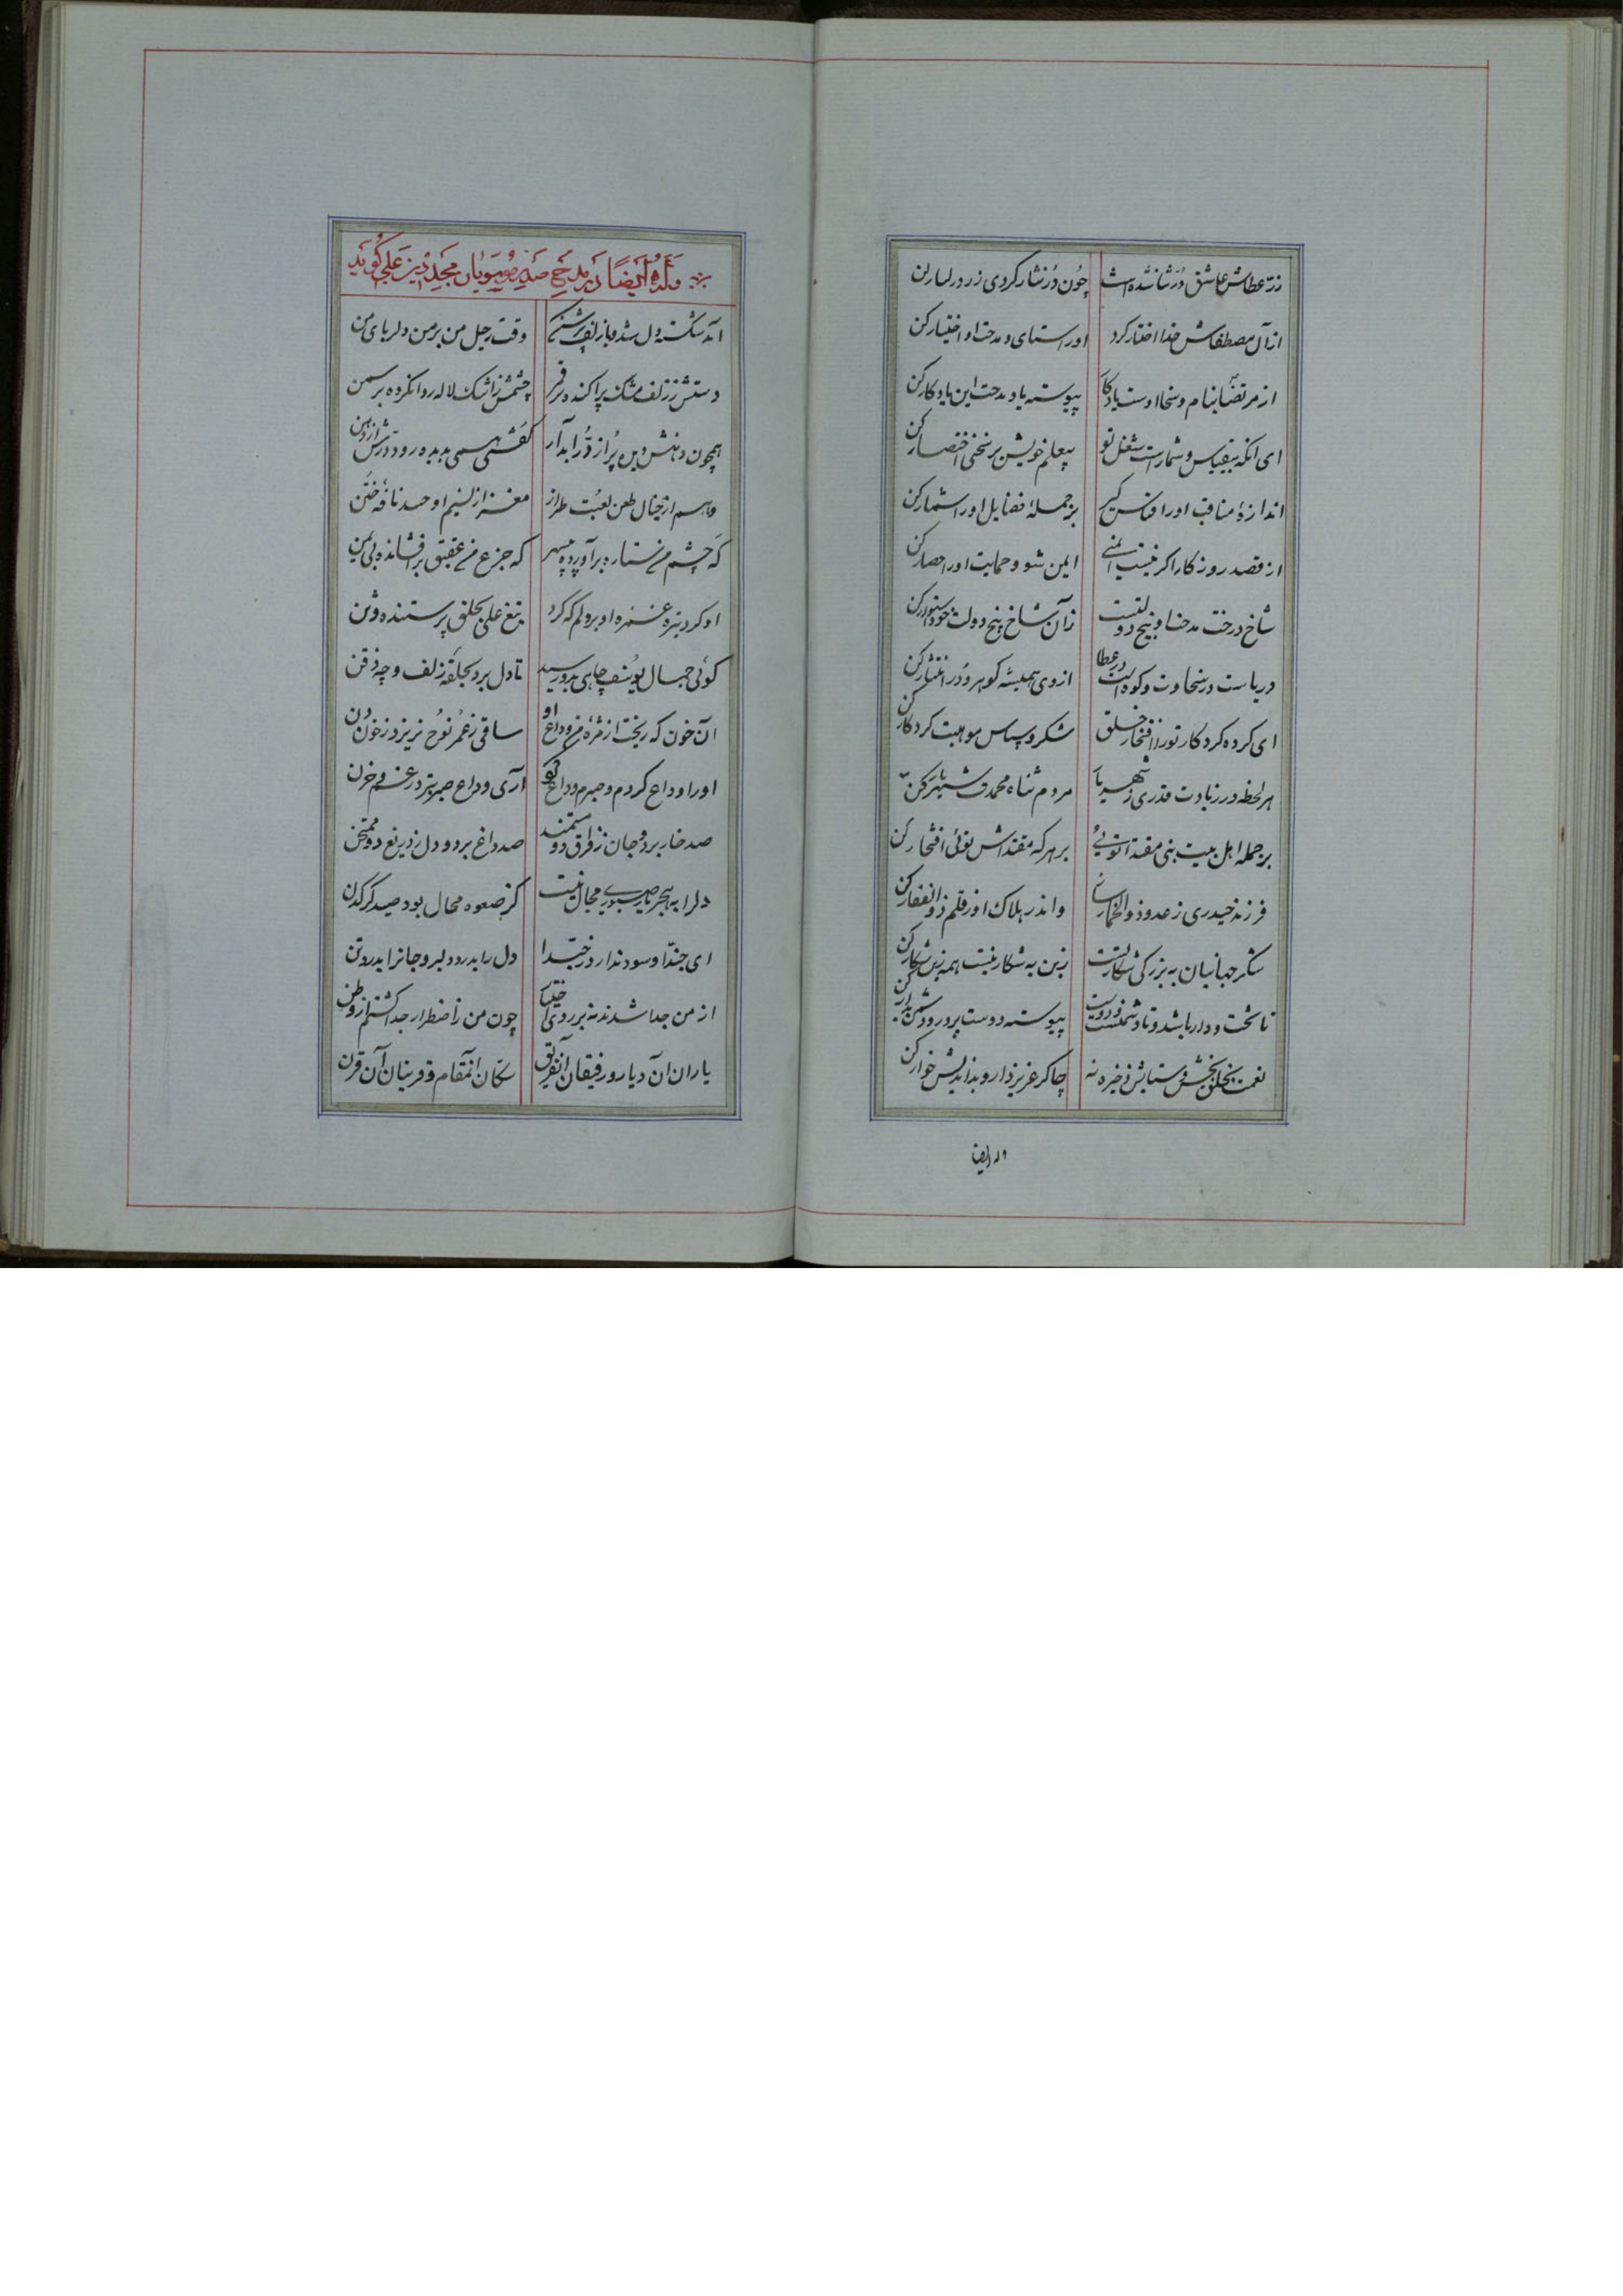 زر عطاش عاشق درشانشده است چون در نثار کردی زر در کنار کن
از آل مصطفاش خدا اختیار کرد او را ستای و مدحت او اختیار کن
از مرتضا بنام و سخا اوست یادکار پیوسته یاد مدحت این یادکار کن
ای آنکه بیقیاس و شمارست شغل تو بر سختی اختصار کن
اندازهٔ مناقب او را قیاس گیر بر جملهٔ فضایل او را شمار کن
از قصد روزکار اکر نیست ایمنی ایمن شو و حمایت او را حصار کن
شاخ درخت مدحت او بیخ دولتست زآن شاخ بیخ دولت خود استوار کن
دریاست در سخاوت و کوه است در عطا از وی همیشه کوهر و در انتثار کن
ای کرده کردکار تو را افتخار خلق شکر و سپاس موهبت کردکار کن
هر لحظه در زیادت قدری ز شهریار مردم ثناه محمدت شهریار کن
بر جمله اهل بیت نبی مقتدا توئی بر هر که مقتداش توئی افتخار کن
فرزند حیدری ز عدو ذوالخمار ساز واندر هلاک او ز قلم ذوالفقار کن
شکر جهانیان به بزرکی شکار تست زین به شکار نیست همه زین شکار کن
تا تخت و دار باشد و تا دشمنست و دوست پیوسته دوست پرور و دشمن بدار کن
نعمت بخلق بخش و ستایش ذخیره نه چاکر عزیز دار و بداندیش خوار کن
وله ایضا
وله ایضاً در مدح صدر موسویان مجد دین علی گوید
آمد شکسته دل شده با زلف پرشکن وقت رحیل من بر من دلربای من
دستش ز زلف مشک پراکنده بر قمر چشمش ز اشک لاله روان کرده بر سمن
همچون دهنش دیده پر از در آبدار کفتی همی بدیده رود درش از دهن
وهم از خیال طعن لعبت طراز مغز از نسیم او حسد نافهٔ ختن
که چشم من ستاره برآورده بر سپهر که جزع من عقیق برافشانده بی یمن
او کرد تیر غمزه او بر دلم که کرد تیغ علی بحلق پرستنده وثن
کوئی جمال یوسف چاهی بدو رسید تا دل برد بحلقهٔ زلف و چه ذقن
آن خون که ریخت از مژه من وداع او ساقی ز عمر نوح نریزد ز خون دن
او را وداع کردم و صبرم وداع کرد آری وداع صبر بتر در غم و حزن
صد خار برد و جان ز فراق دو مستمند صد داغ برد و دل ز دریغ دو ممتحن
دلرا به هجر یار صبوری مجال نیست کز صعوه محال بود صید کرکدن
ای جندا و سود ندارد ز جندا دل را بدرد دلبر و جانرا بدرد تن
از من جدا شدند نه بر روی اختیار چون من ز اضطرار جدا کشتم از وطن
یاران آن دیار و رفیقان آنفریق سکان آنمقام و قرینان آن قرن